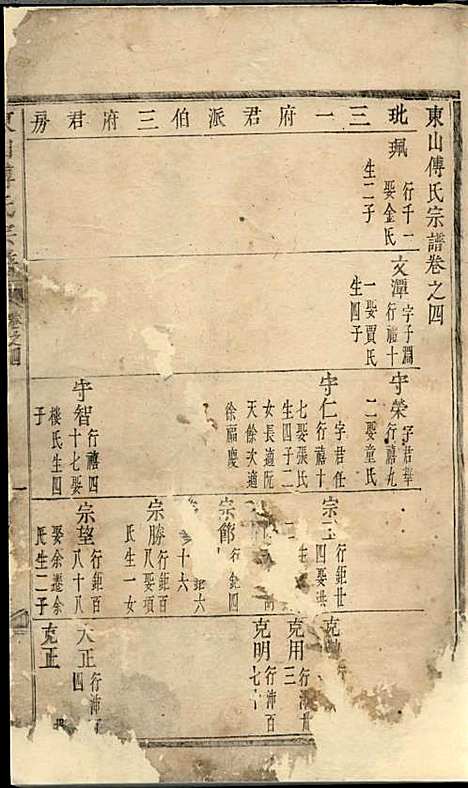 東山傅氏宗譜卷之四
玭三一府君派伯三府君房
珮
行千一
娶金氏
生二子
文潭
字子淵
行禧十
一娶賈氏
生四子
守榮
字君華
行禧九
二娶童氏
守仁
字君任
行禧十
七娶張氏
生四子二
女長適阮
天餘次適
徐福慶
守智
行禧四
十七娶
樓氏生四
子
宗
行鉅廿
四娶洪
生
宗節
行鉅四
十六
鉅六
宗勝
行鉅百
八娶項
氏生一女
宗望
行鉅百
八十八
娶余遷余
氏生二子
克
行
克用
行沛卅
三
克明
行沛百
七十
天正
行沛百
四
克正
卷之四